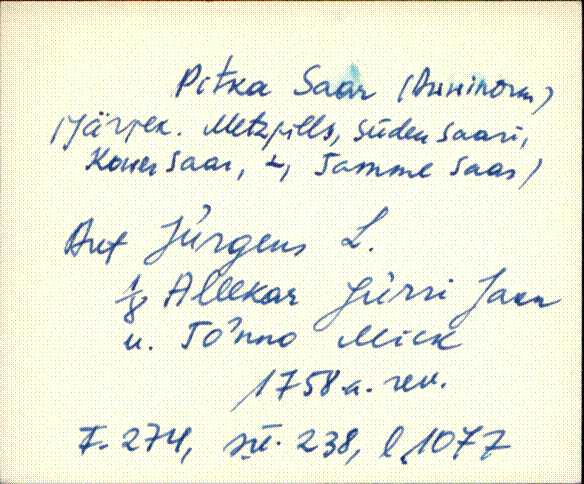 Pitka Saar (Anninorm)
(Järjek. Metzpills, Süden Saari,
Kower Saar, t, Tamme Saar)
Auf Jürgens L.
1/8 Allekar Jürri Jaan
u. Tõnno Mick
1758.a. rev.
F. 274, sü. 238, l. 1077